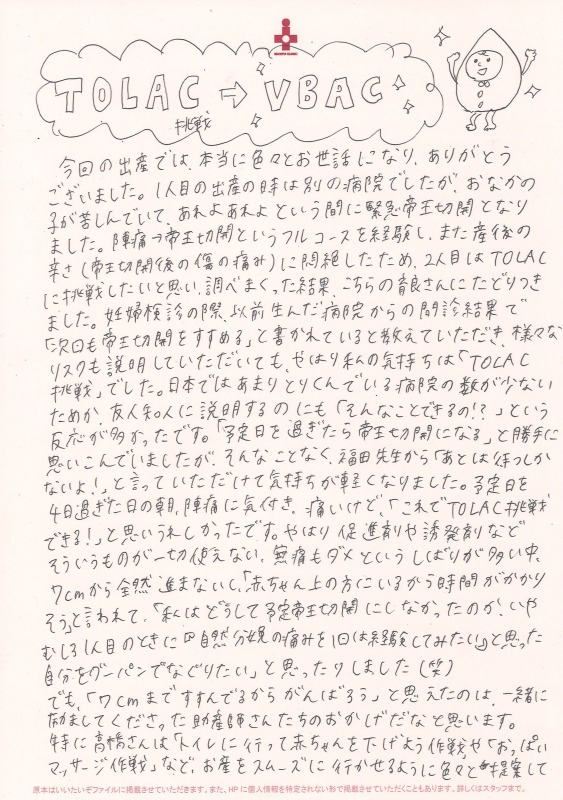 TOLAC → VBAC
挑戦
今回の出産では、本当に色々とお世話になり、ありがとう
ございました。1人目の出産の時は別の病院でしたが、おなかの
子が苦しんでいて、あれよあれよという間に緊急帝王切開となり
ました。陣痛→帝王切開というフルコースを経験し、また産後の
辛さ(帝王切開後の傷の痛み)に悶絶したため、2人目はTOLAC
に挑戦したいと思い、調べまくった結果、こちらの育良さんにたどりつき
ました。妊婦検診の際、以前生んだ病院からの問診結果で
「次回も帝王切開をすすめる」と書かれていると教えていただき、様々な
リスクも説明していただいても、やはり私の気持ちは「TOLAC
挑戦」でした。日本ではあまりとりくんでいる病院の数が少ない
ためか、友人知人に説明するのにも「そんなことできるの!?」という
反応が多かったです。「予定日を過ぎたら帝王切開になる」と勝手に
思いこんでいましたが、そんなことなく、福田先生から「あとは待つしか
ないよ!」と言っていただけて気持ちが軽くなりました。予定日を
4日過ぎた日の朝、陣痛に気付き、痛いけど、「これでTOLAC挑戦
できる!」と思いうれしかったです。やはり促進剤や誘発剤など
そういうものが一切使えない、無痛もダメというしばりが多い中、
7cmから全然進まないし、「赤ちゃん上の方にいるから時間がかかり
そう」と言われて、「私はどうして予定帝王切開にしなかったのか、いや
むしろ1人目のときに『自然分娩の痛みを1回は経験してみたい』と思った
自分をグーパンでなぐりたい」と思ったりしました(笑)
でも、「7cmまですすんでるからがんばろう」と思えたのは、一緒に
励ましてくださった助産師さんたちのおかげだなと思います。
特に高橋さんは「トイレに行って赤ちゃんを下げよう作戦」や「おっぱい
マッサージ作戦」など、お産をスムーズに行かせるように色々と提案して
原本はいいたいぞファイルに掲載させていただきます。また、HPに個人情報を特定されない形で掲載させていただくこともあります。詳しくはスタッフまで。